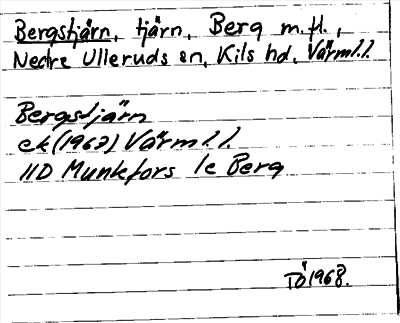 Bergstjärn, tjärn, Berg m.fl.,
Nedre Ulleruds sn, Kils hd, Värml.l.
Bergstjärn
ek (1967) Värml.l.
11D Munkfors 1c Berg
TÖ 1968.